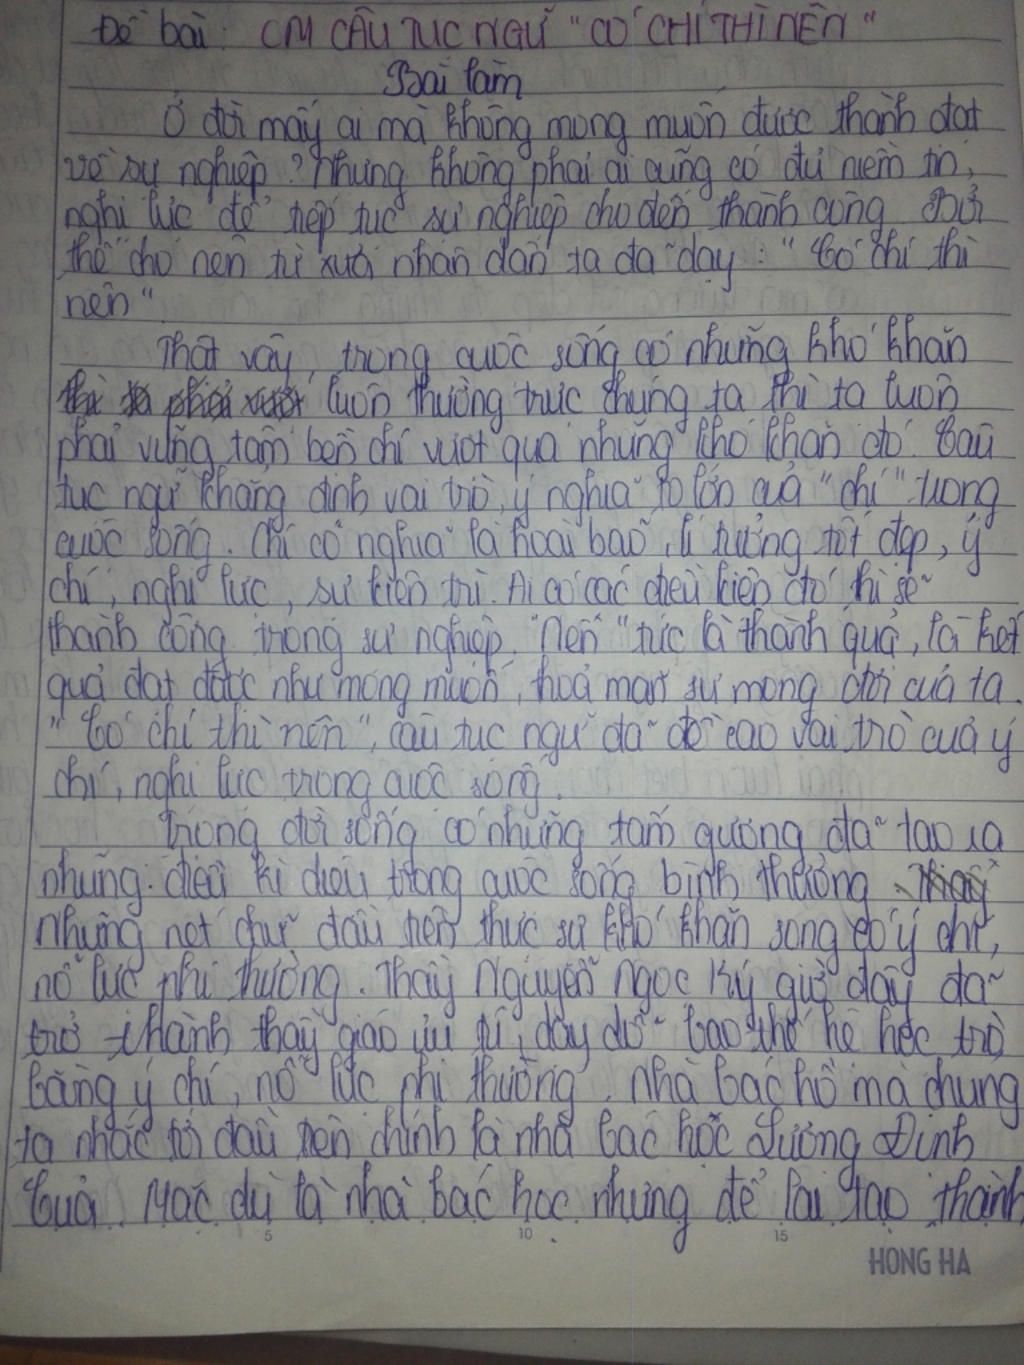 Đề bài: CM CÂU TỤC NGỮ "CÓ CHÍ THÌ NÊN"
Bài làm
Ở đời mấy ai mà không mong muốn được thành đạt
về sự nghiệp? Nhưng không phải ai cũng có đủ niềm tin,
nghị lực để tiếp tục sự nghiệp cho đến thành công. Bởi
thế cho nên từ xưa nhân dân ta đã dạy: "Có chí thì
nên"
Thật vậy, trong cuộc sống có những khó khăn
luôn thường trực chúng ta thì ta luôn
phải vững tâm bền chí vượt qua những khó khăn đó. Câu
tục ngữ khẳng định vai trò, ý nghĩa to lớn của "chí" trong
cuộc sống. Chí có nghĩa là hoài bão, lí tưởng tốt đẹp, ý
chí, nghị lực, sự kiên trì. Ai có các điều kiện đó thì sẽ
thành công trong sự nghiệp. "Nên" tức là thành quả, là kết
quả đạt được như mong muốn, thoả mãn sự mong đợi của ta.
"Có chí thì nên", câu tục ngữ đã đề cao vai trò của ý
chí, nghị lực trong cuộc sống.
Trong đời sống có những tấm gương đã tạo ra
những điều kì diệu trong cuộc sống bình thường.
Những nét chữ đầu tiên thực sự khó khăn song có ý chí,
nỗ lực phi thường. Thầy Nguyễn Ngọc Ký giờ đây đã
trở thành thầy giáo ưu tú, dạy dỗ bao thế hệ học trò
bằng ý chí, nỗ lực phi thường. Nhà bác hồ mà chúng
ta nhắc tới đầu tiên chính là nhà bác học Lương Định
Của. Mặc dù là nhà bác học nhưng để lai tạo thành
5 10 15
HONG HA